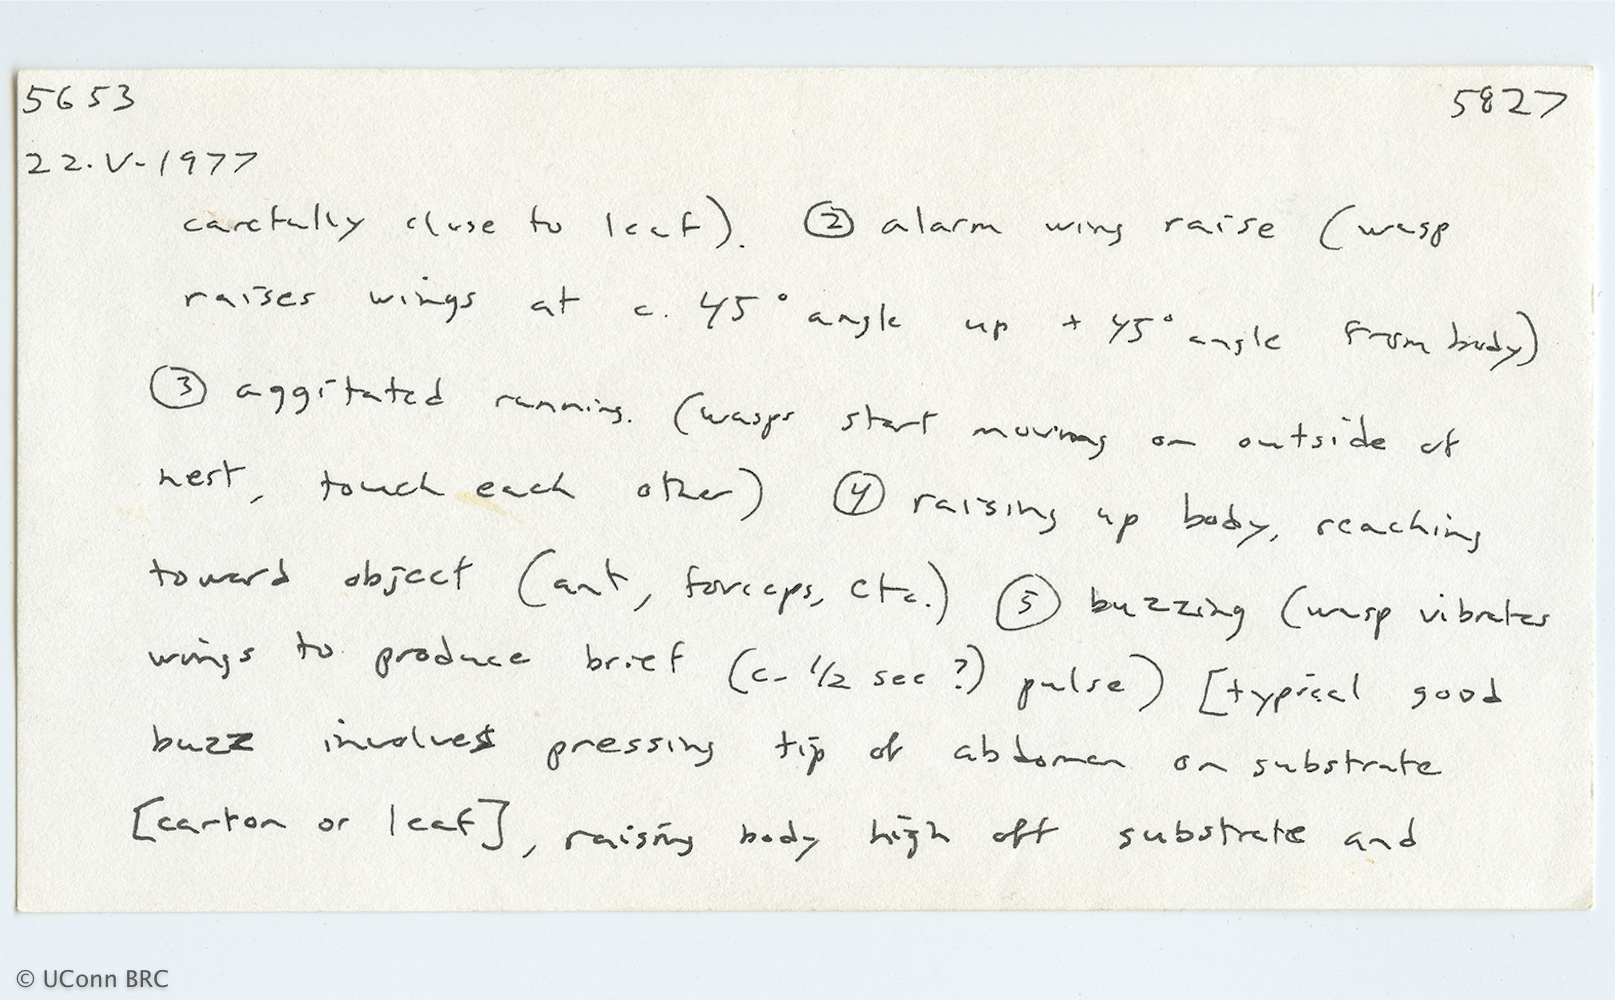 5653
5827
22.V-1977
carefully close to leaf). ② alarm wing raise (wasp
raises wings at c. 45° angle up + 45° angle from body)
③ aggitated running. (wasps start moving on outside of
nest, touch each other) ④ raising up body, reaching
toward object (ant, forceps, etc.) ⑤ buzzing (wasp vibrates
wings to produce brief (c. 1/2 sec ?) pulse) [typical good
buzz involves pressing tip of abdomen on substrate
[carton or leaf], raising body high off substrate and
© UConn BRC